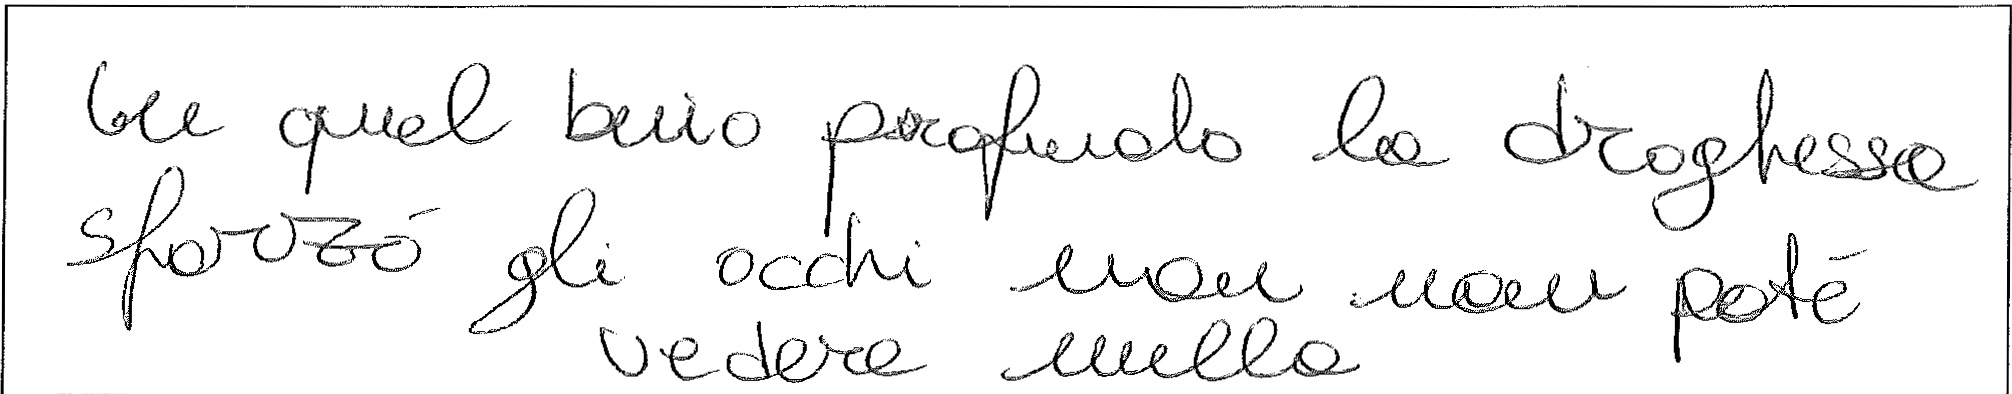 In quel buio profondo la draghessa
sforzó gli occhi non non poté
vedere nulla